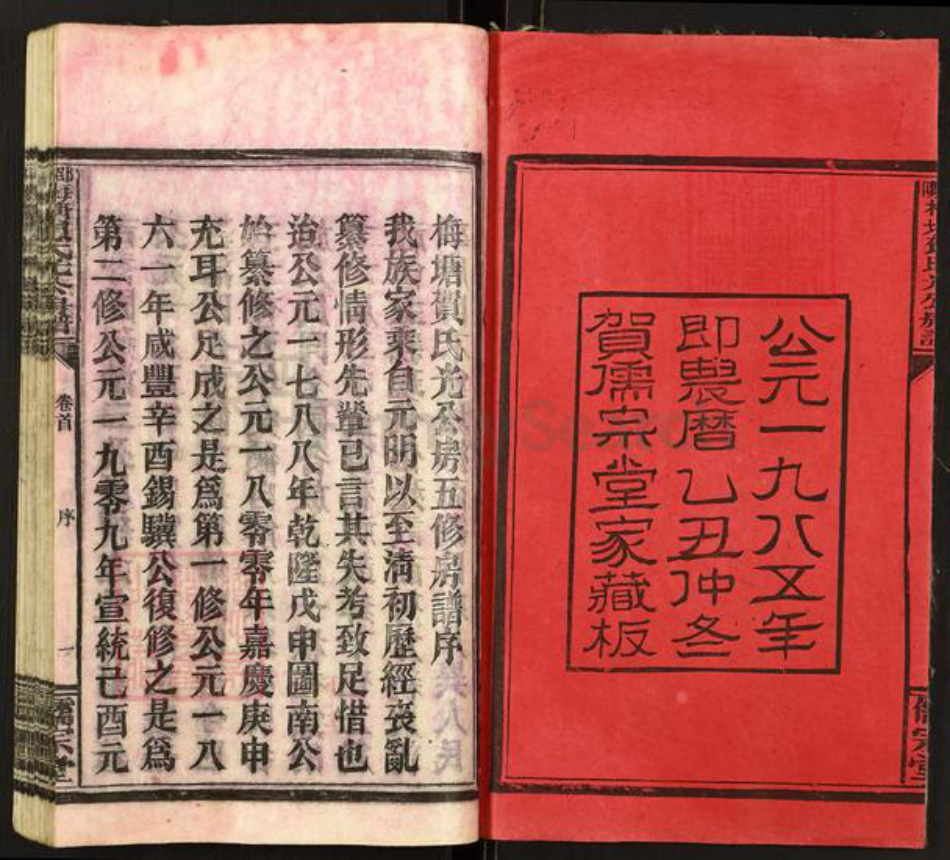 公元一九八五年
即農曆乙丑仲冬
賀儒宗堂家藏板
梅塘賀氏光公房五修房譜序
我族家乘自元明以至清初歷經喪亂
纂修情形先輩已言其失考致足惜也
治公元一七八八年乾隆戊申圖南公
始纂修之公元一八零零年嘉慶庚申
充耳公足成之是爲第一修公元一八
六一年咸豐辛酉錫驥公復修之是爲
第二修公元一九零九年宣統己酉元
卷首
序
一
儒宗堂